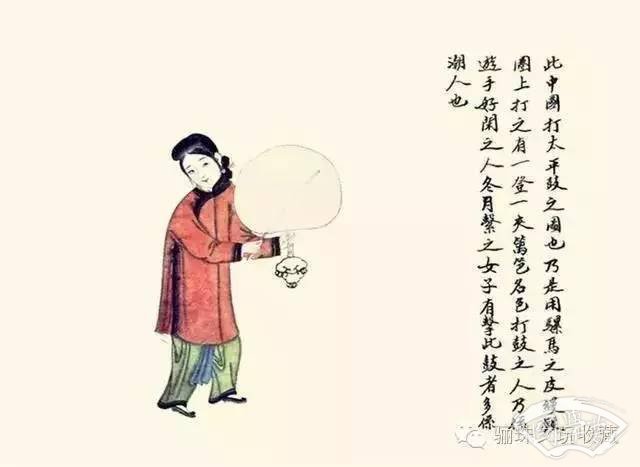 此中國打太平鼓之圖也乃是用騾馬之皮
圈上打之有一登一夾篱笆名色打鼓之人乃係
遊手好閑之人冬月繫之女子有擊此鼓者多係
潮人也
骊珠文玩收藏